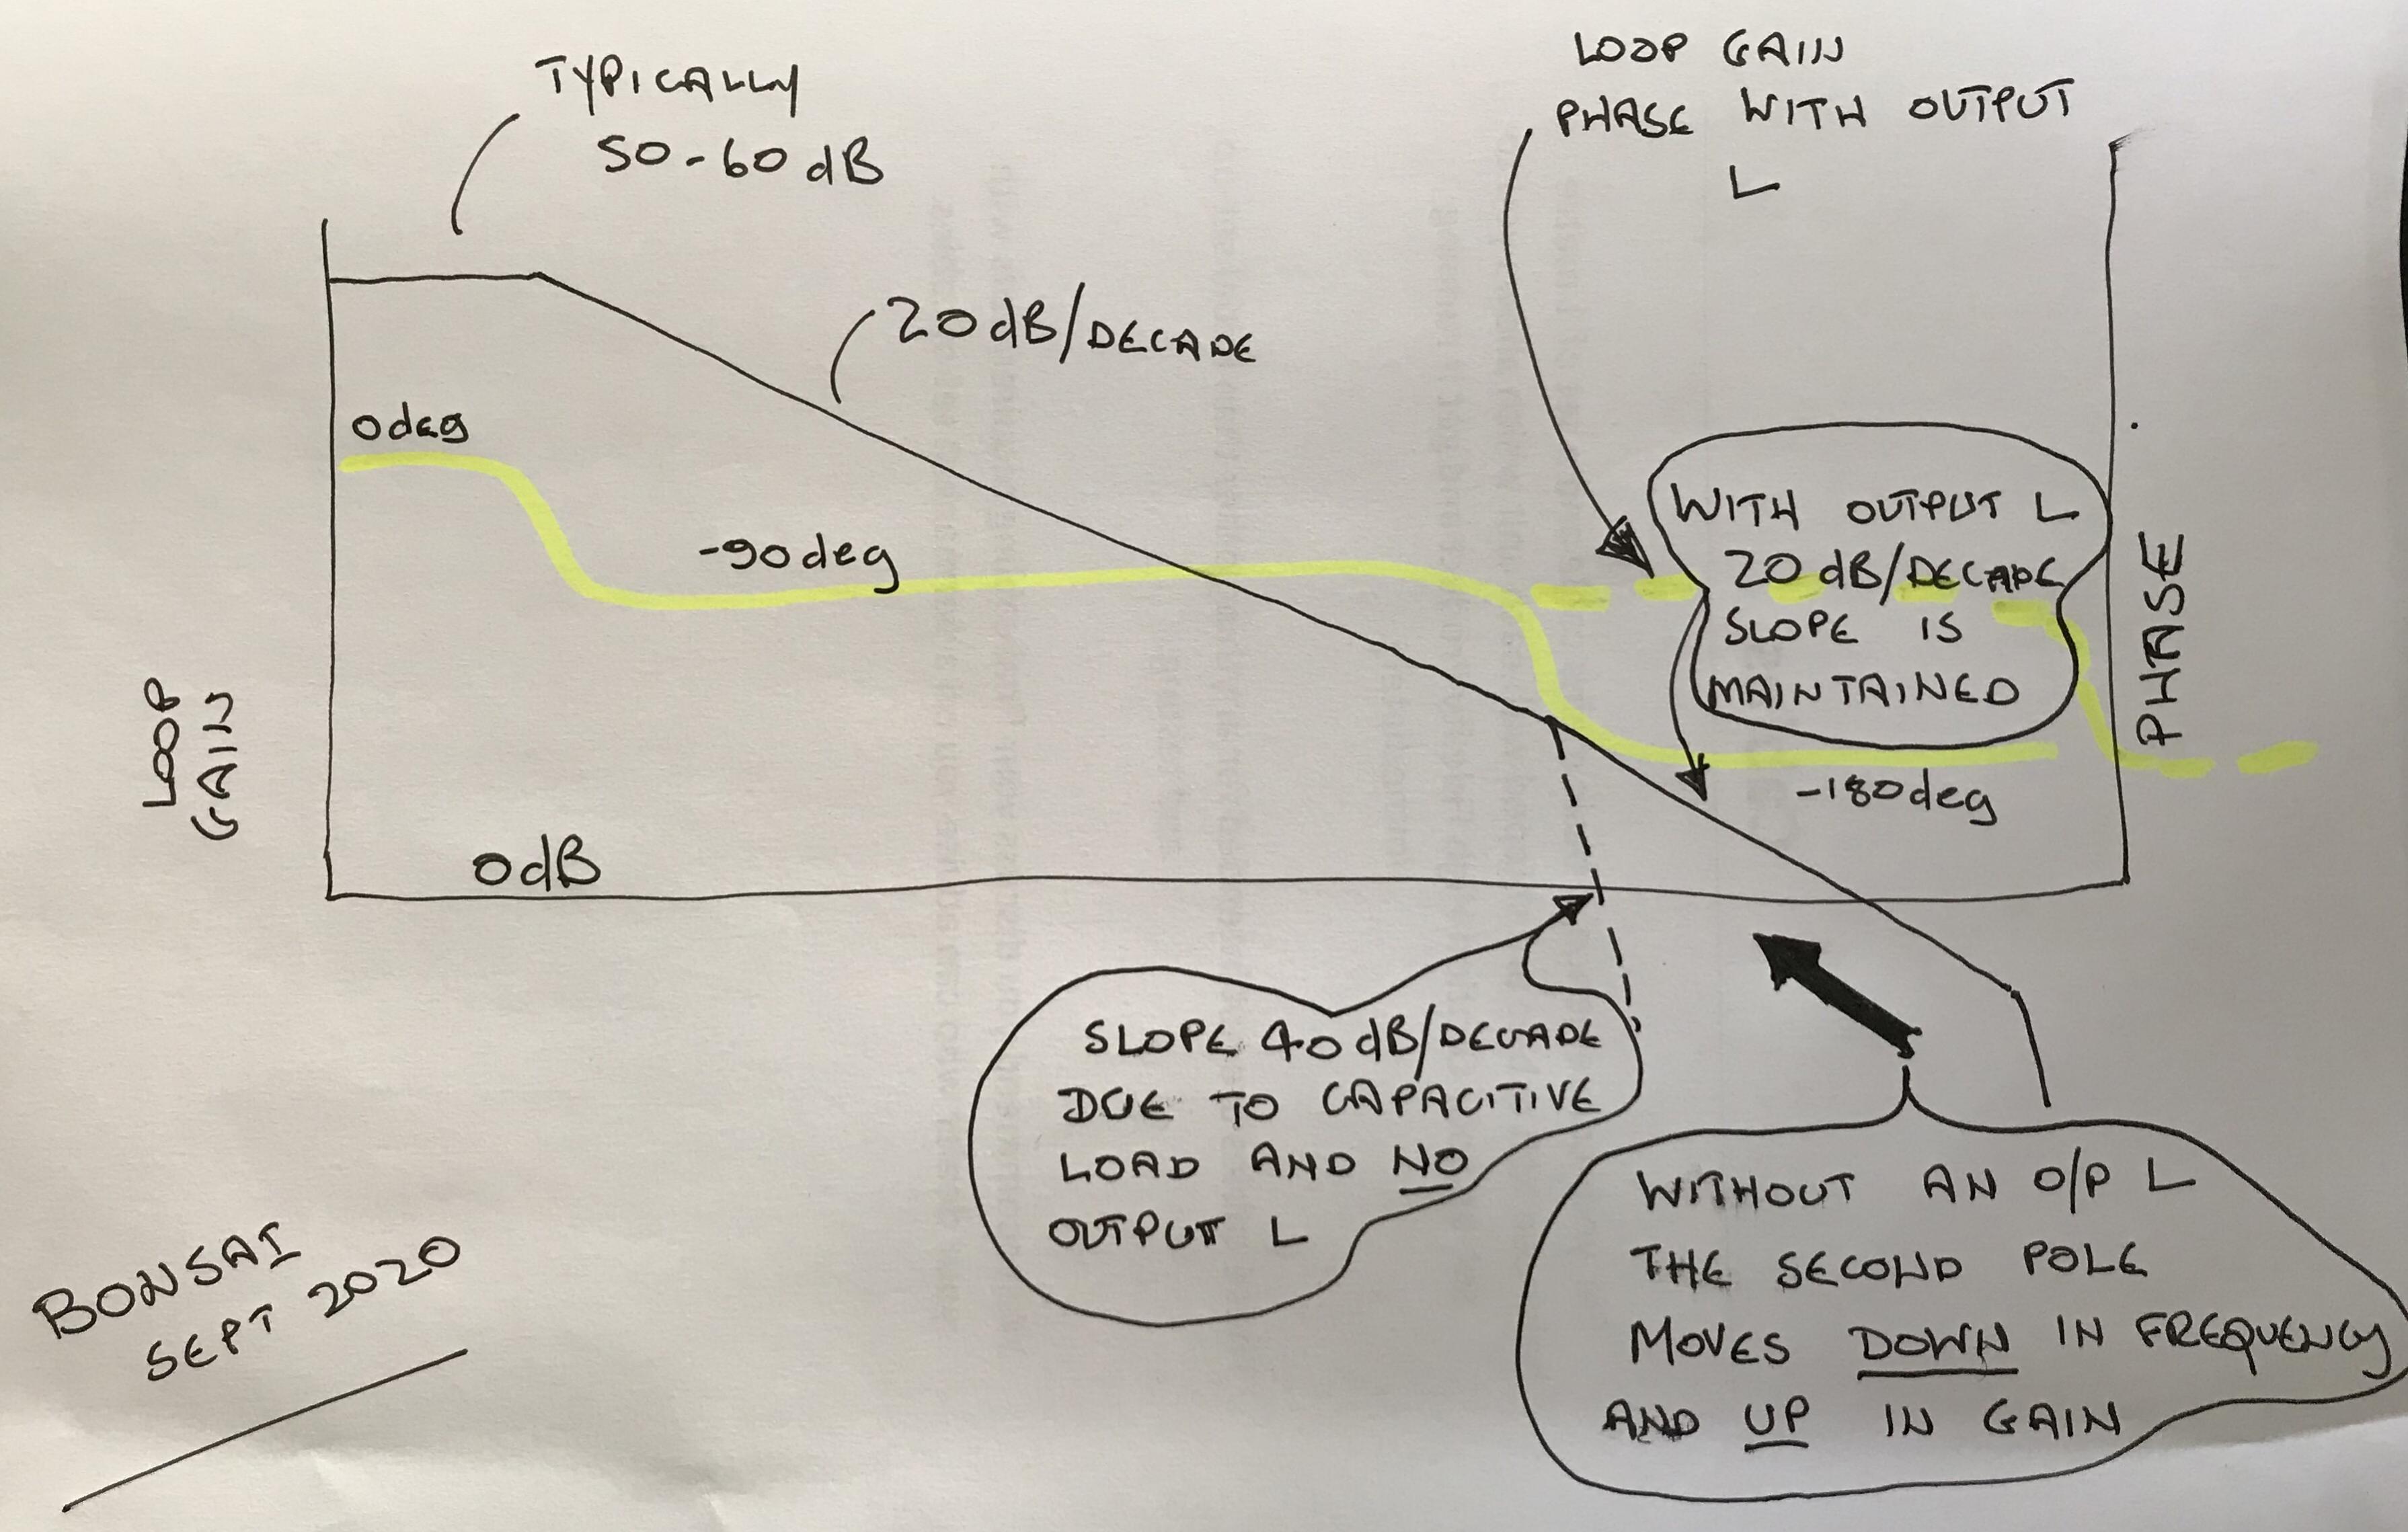 TYPICALLY
50-60 dB
LOOP GAIN
PHASE WITH OUTPUT
L
20 dB/DECADE
0 deg
-90 deg
WITH OUTPUT L
20 dB/DECADE
SLOPE IS
MAINTAINED
PHASE
LOOP
GAIN
-180 deg
0 dB
SLOPE 40 dB/DECADE
DUE TO CAPACITIVE
LOAD AND NO
OUTPUT L
WITHOUT AN O/P L
THE SECOND POLE
MOVES DOWN IN FREQUENCY
AND UP IN GAIN
BONSAI
SEPT 2020